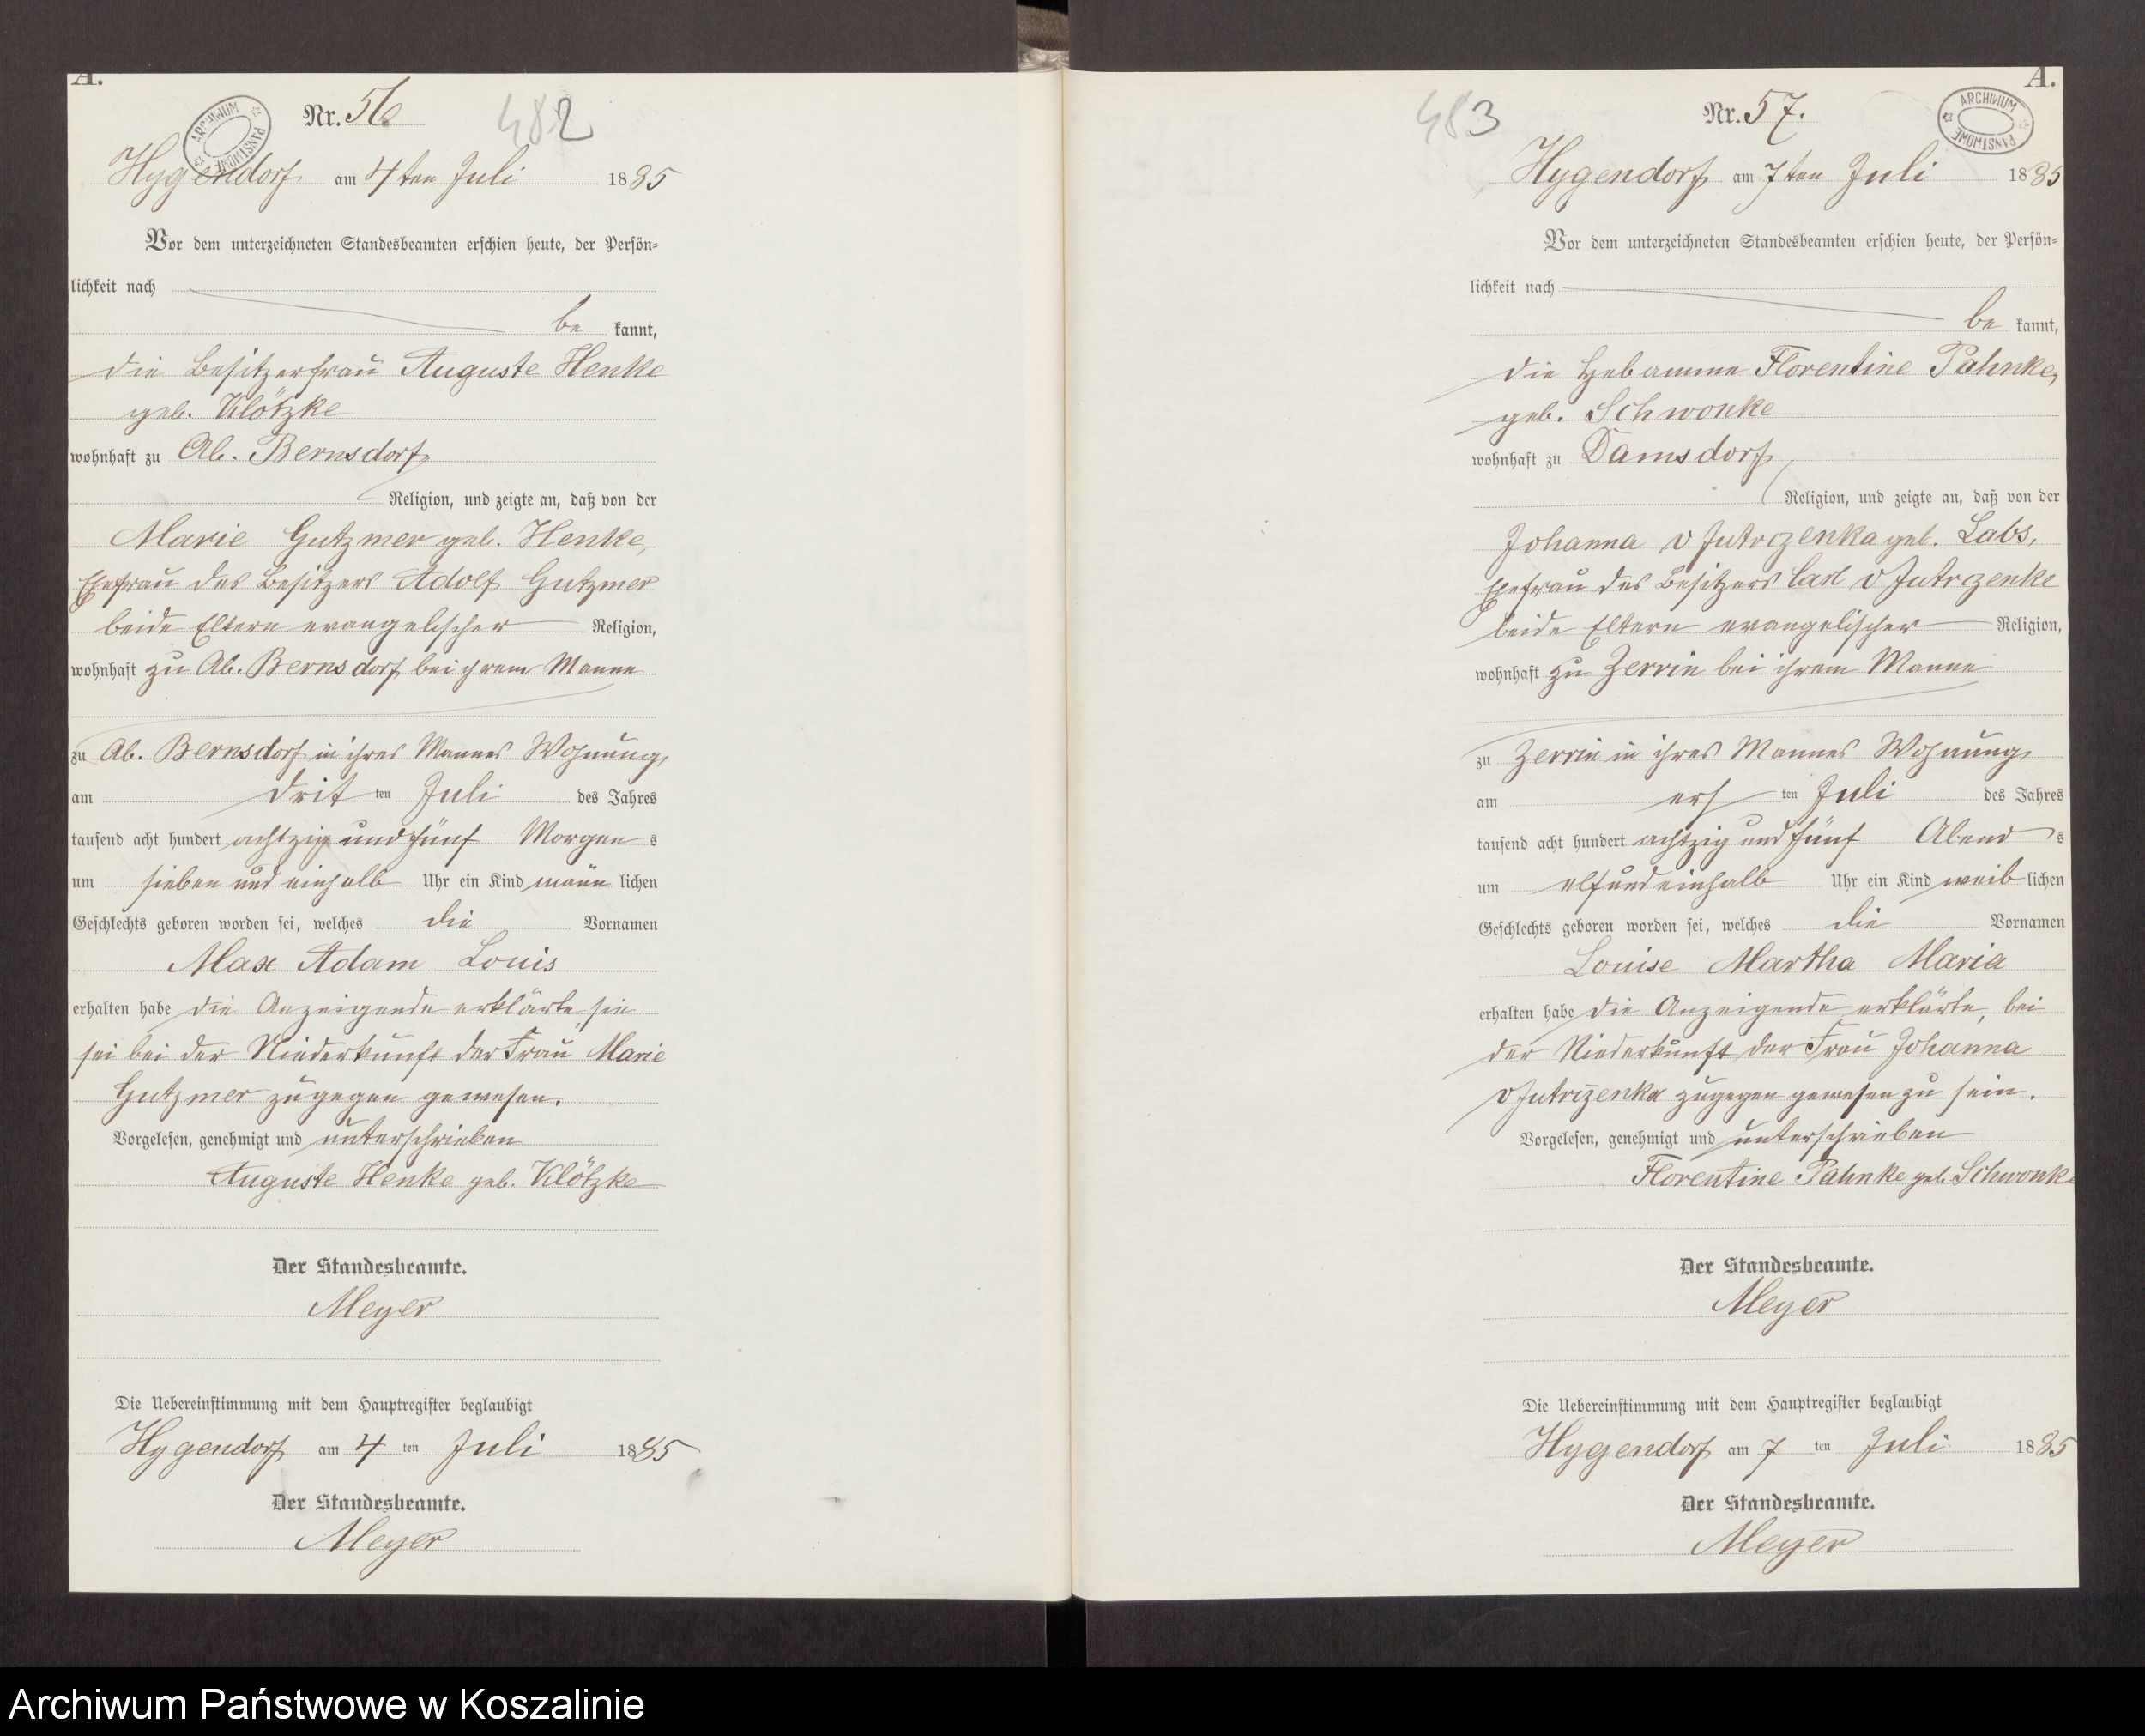 A.
Nr. 56
482
ARCHIWUM PAŃSTWOWE
Hygendorf am 4ten Juli 1885
Vor dem unterzeichneten Standesbeamten erschien heute, der Persön-
lichkeit nach
be kannt,
die Besitzerfrau Auguste Henke
geb. Klötzke
wohnhaft zu Ab. Bernsdorf
Religion, und zeigte an, daß von der
Marie Gutzmer geb. Henke,
Ehefrau des Besitzers Adolf Gutzmer
beide Eltern evangelischer Religion,
wohnhaft zu Ab. Bernsdorf bei ihrem Manne
zu Ab. Bernsdorf in ihres Mannes Wohnung,
am drit ten Juli des Jahres
tausend acht hundert achtzig und fünf Morgen s
um sieben und einhalb Uhr ein Kind männ lichen
Geschlechts geboren worden sei, welches die Vornamen
Max Adam Louis
erhalten habe die Anzeigende erklärte, sie
sei bei der Niederkunft der Frau Marie
Gutzmer zugegen gewesen.
Vorgelesen, genehmigt und unterschrieben
Auguste Henke geb. Klötzke
Der Standesbeamte.
Meyer
Die Uebereinstimmung mit dem Hauptregister beglaubigt
Hygendorf am 4 ten Juli 1885
Der Standesbeamte.
Meyer
A.
483
Nr. 57.
ARCHIWUM PAŃSTWOWE
Hygendorf am 7ten Juli 1885
Vor dem unterzeichneten Standesbeamten erschien heute, der Persön-
lichkeit nach
be kannt,
die Hebamme Florentine Pahnke,
geb. Schwonke
wohnhaft zu Damsdorf
Religion, und zeigte an, daß von der
Johanna v Jutrczenka geb. Labs,
Ehefrau des Besitzers Carl v Jutrczenke
beide Eltern evangelischer Religion,
wohnhaft zu Zerrin bei ihrem Manne
zu Zerrin in ihres Mannes Wohnung,
am ers ten Juli des Jahres
tausend acht hundert achtzig und fünf Abend s
um elfundeinhalb Uhr ein Kind weib lichen
Geschlechts geboren worden sei, welches die Vornamen
Louise Martha Maria
erhalten habe die Anzeigende erklärte, bei
der Niederkunft der Frau Johanna
v Jutrzenka zugegen gewesen zu sein.
Vorgelesen, genehmigt und unterschrieben
Florentine Pahnke geb. Schwonke
Der Standesbeamte.
Meyer
Die Uebereinstimmung mit dem Hauptregister beglaubigt
Hygendorf am 7 ten Juli 1885
Der Standesbeamte.
Meyer
Archiwum Państwowe w Koszalinie